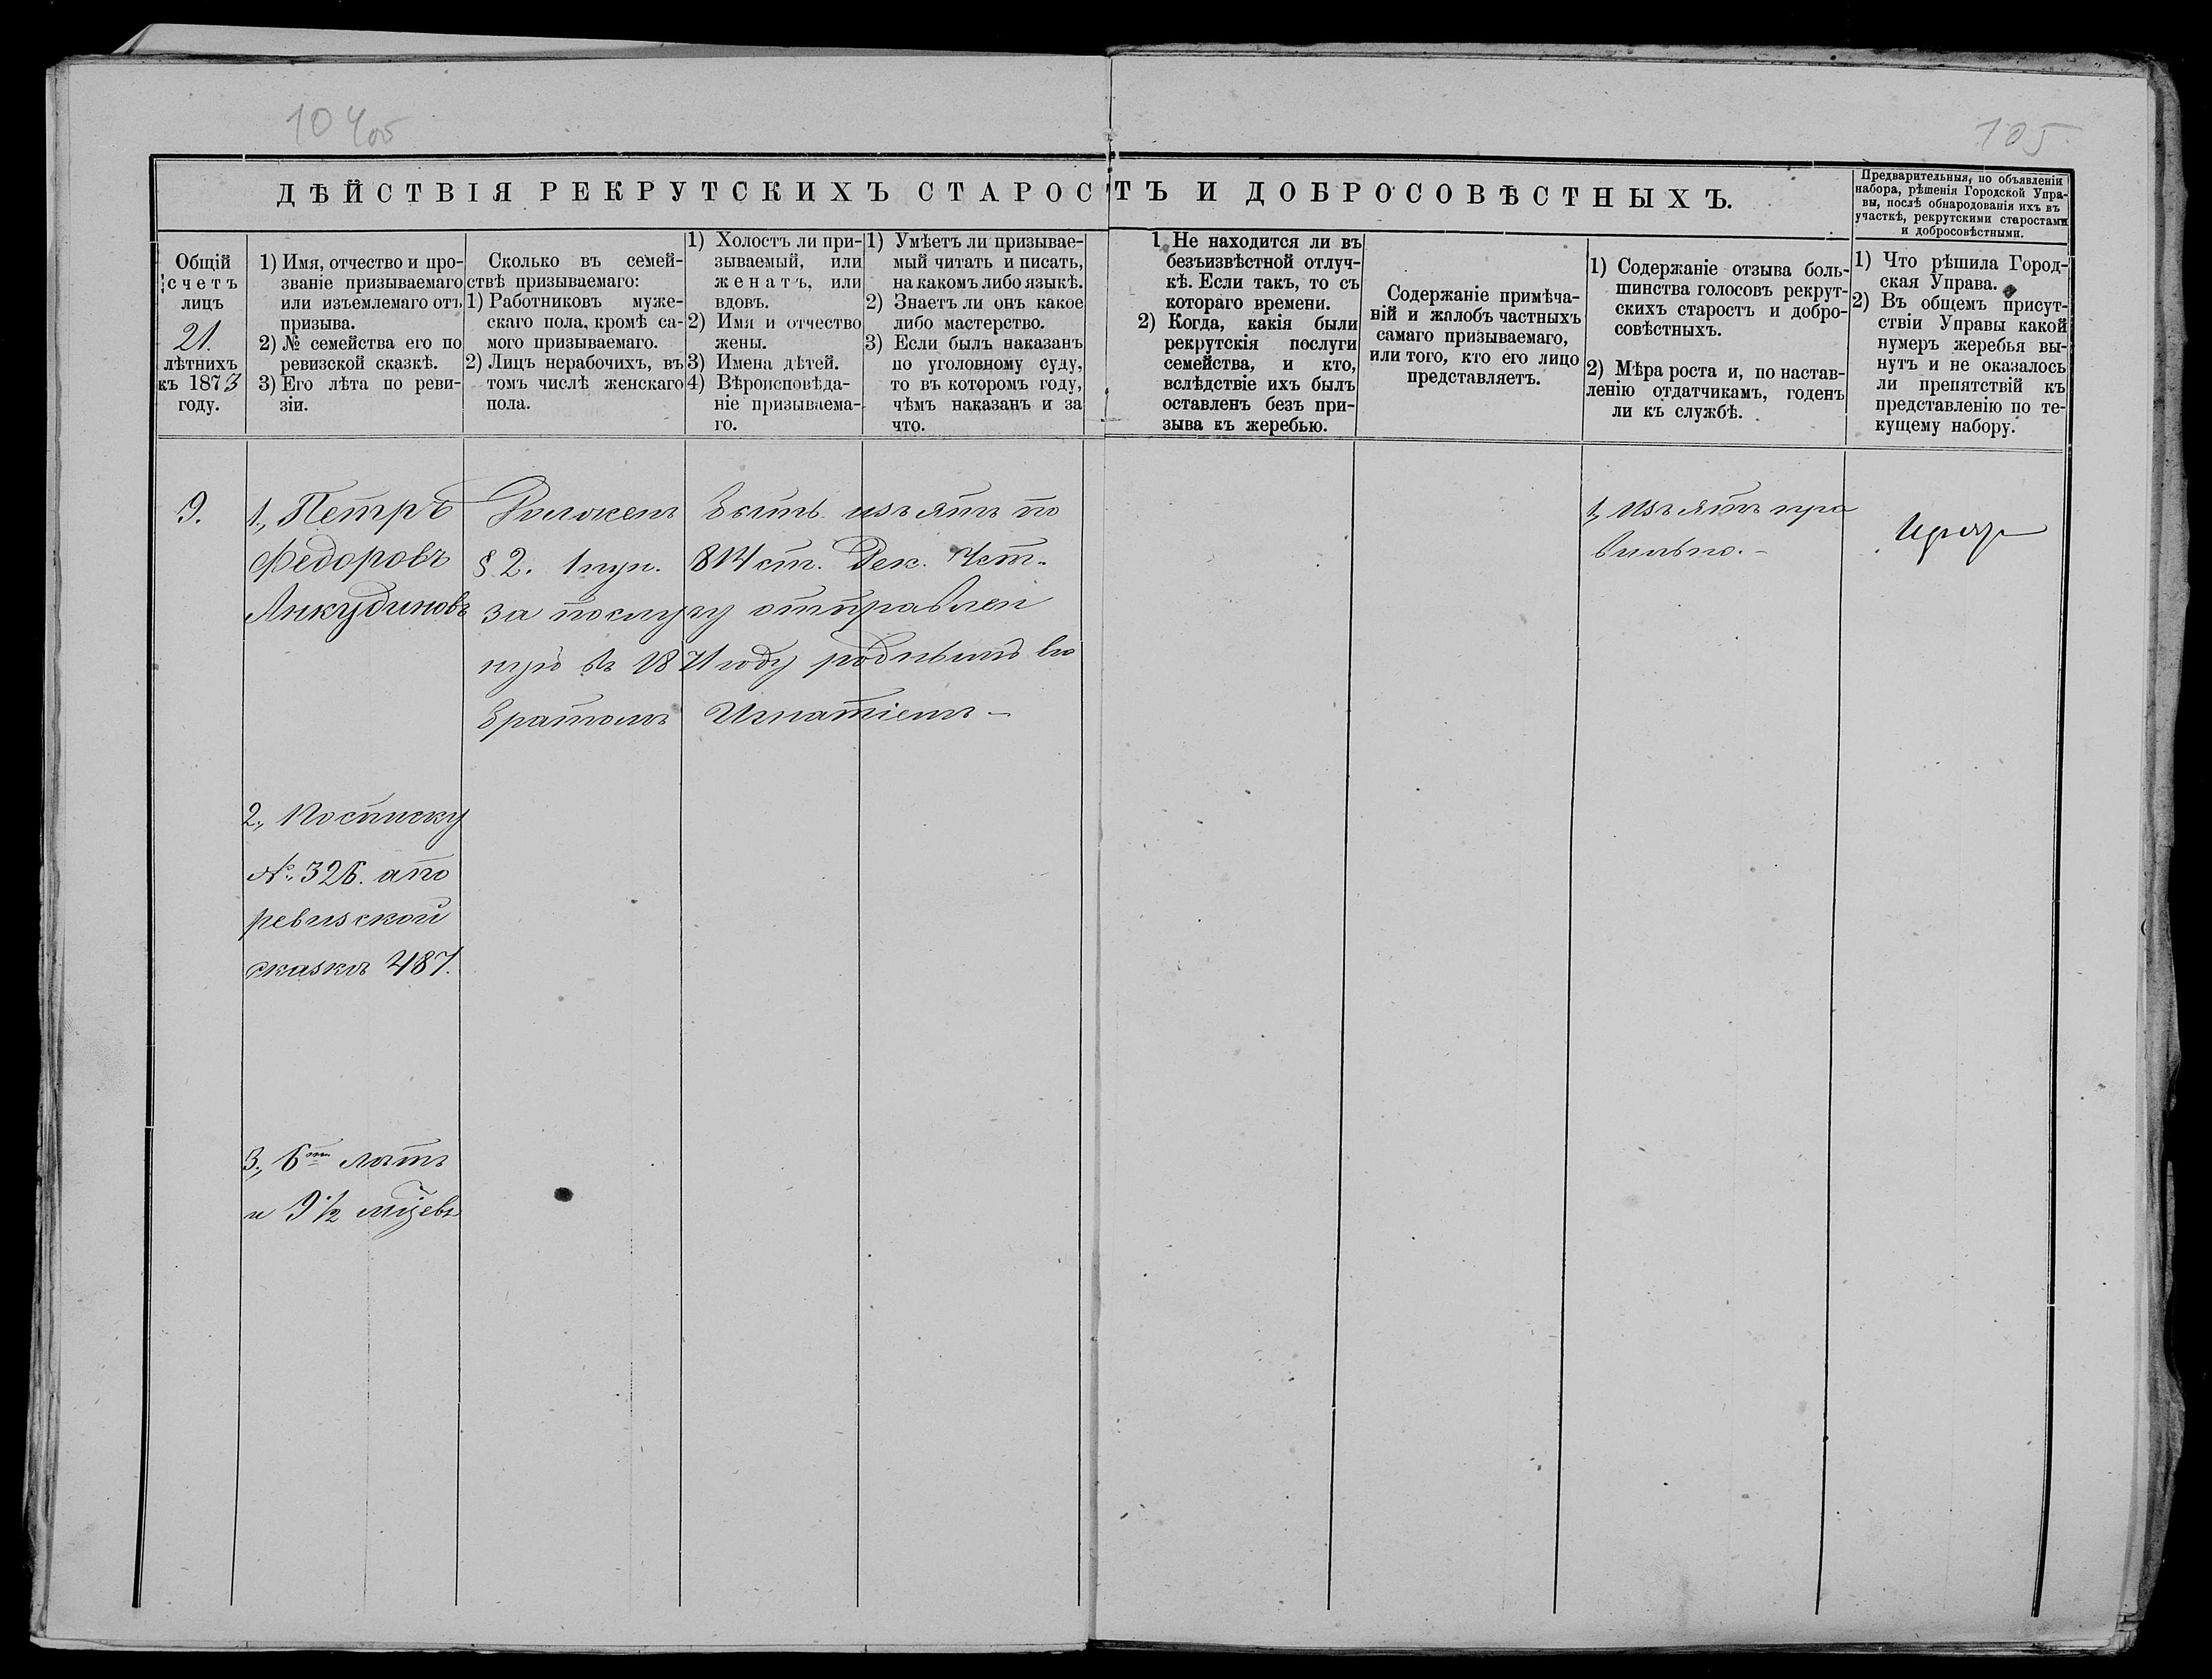 105
ДѢЙСТВІЯ РЕКРУТСКИХЪ СТАРОСТЪ И ДОБРОСОВѢСТНЫХЪ.
Предварительныя, по объявленіи
набора, рѣшенія Городской Упра-
вы, послѣ обнародованія ихъ въ
участкѣ, рекрутскими старостами
и добросовѣстными.
Общій
счетъ
лицъ
21.
лѣтнихъ
къ 1873
году.
1) Имя, отчество и про-
званіе призываемаго
или изъемлемаго отъ
призыва.
2) № семейства его по
ревизской сказкѣ.
3) Его лѣта по реви-
зіи.
Сколько въ семей-
ствѣ призываемаго:
1) Работниковъ муже-
скаго пола, кромѣ са-
мого призываемаго.
2) Лицъ нерабочихъ, въ
томъ числѣ женскаго
пола.
1) Холостъ ли при-
зываемый, или
женатъ, или
вдовъ.
2) Имя и отчество
жены.
3) Имена дѣтей.
4) Вѣроисповѣда-
ніе призываема-
го.
1) Умѣетъ ли призывае-
мый читать и писать,
на какомъ либо языкѣ.
2) Знаетъ ли онъ какое
либо мастерство.
3) Если былъ наказанъ
по уголовному суду,
то въ которомъ году,
чѣмъ наказанъ и за
что.
1 Не находится ли въ
безъизвѣстной отлуч-
кѣ. Если такъ, то съ
котораго времени.
2) Когда, какія были
рекрутскія послуги
семейства, и кто,
вслѣдствіе ихъ былъ
оставленъ безъ при-
зыва къ жеребью.
Содержаніе примѣча-
ній и жалобъ частныхъ
самаго призываемаго,
или того, кто его лицо
представляетъ.
1) Содержаніе отзыва боль-
шинства голосовъ рекрут-
скихъ старостъ и добро-
совѣстныхъ.
2) Мѣра роста и, по настав-
ленію отдатчикамъ, годенъ
ли къ службѣ.
1) Что рѣшила Город-
ская Управа.
2) Въ общемъ присут-
ствіи Управы какой
нумеръ жеребья вы-
нутъ и не оказалось
ли препятствій къ
представленію по те-
кущему набору.
9.
1., Петръ
Федоровъ
Анкудиновъ
2., По списку
№. 326. а по
ревизской
сказкѣ 487.
3., 6ти лѣтъ
и 9 1/2 мцевъ
Долженъ быть изъятъ по
§ 2. 1 пун. 814 ст. Рек. Уст.
за послугу отправлен
ную въ 1871 году роднымъ его
братомъ Игнатіемъ –
1., Изъятъ пра
вильно. –